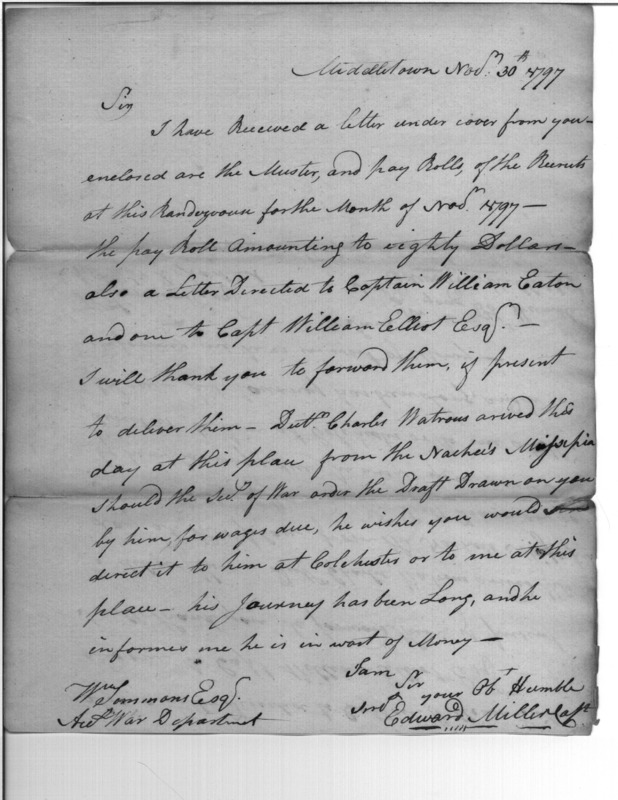 Middletown Novr. 30th 1797
Sir
I have Received a letter under cover from you—
enclosed are the Muster, and pay Rolls, of the Recruits
at this Randezvous for the Month of Novr. 1797—
the pay Roll amounting to eighty Dollars—
also a Letter Directed to Captain William Eaton
and one to Capt William Elliot Esqr.—
I will thank you to forward them, if present
to deliver them— Charles Watrous arived this
day at this place from the Nachees
should the Secy. of War order the Draft Drawn on you
by him, for wages due, he wishes you would
direct it to him at Colchester or to me at this
place— his Journey has been Long, and he
informes me he is in want of Money—
I am
Sir
your Obt Humble
Wm Simmons Esqr.
Edward Miller Capt.
War Department